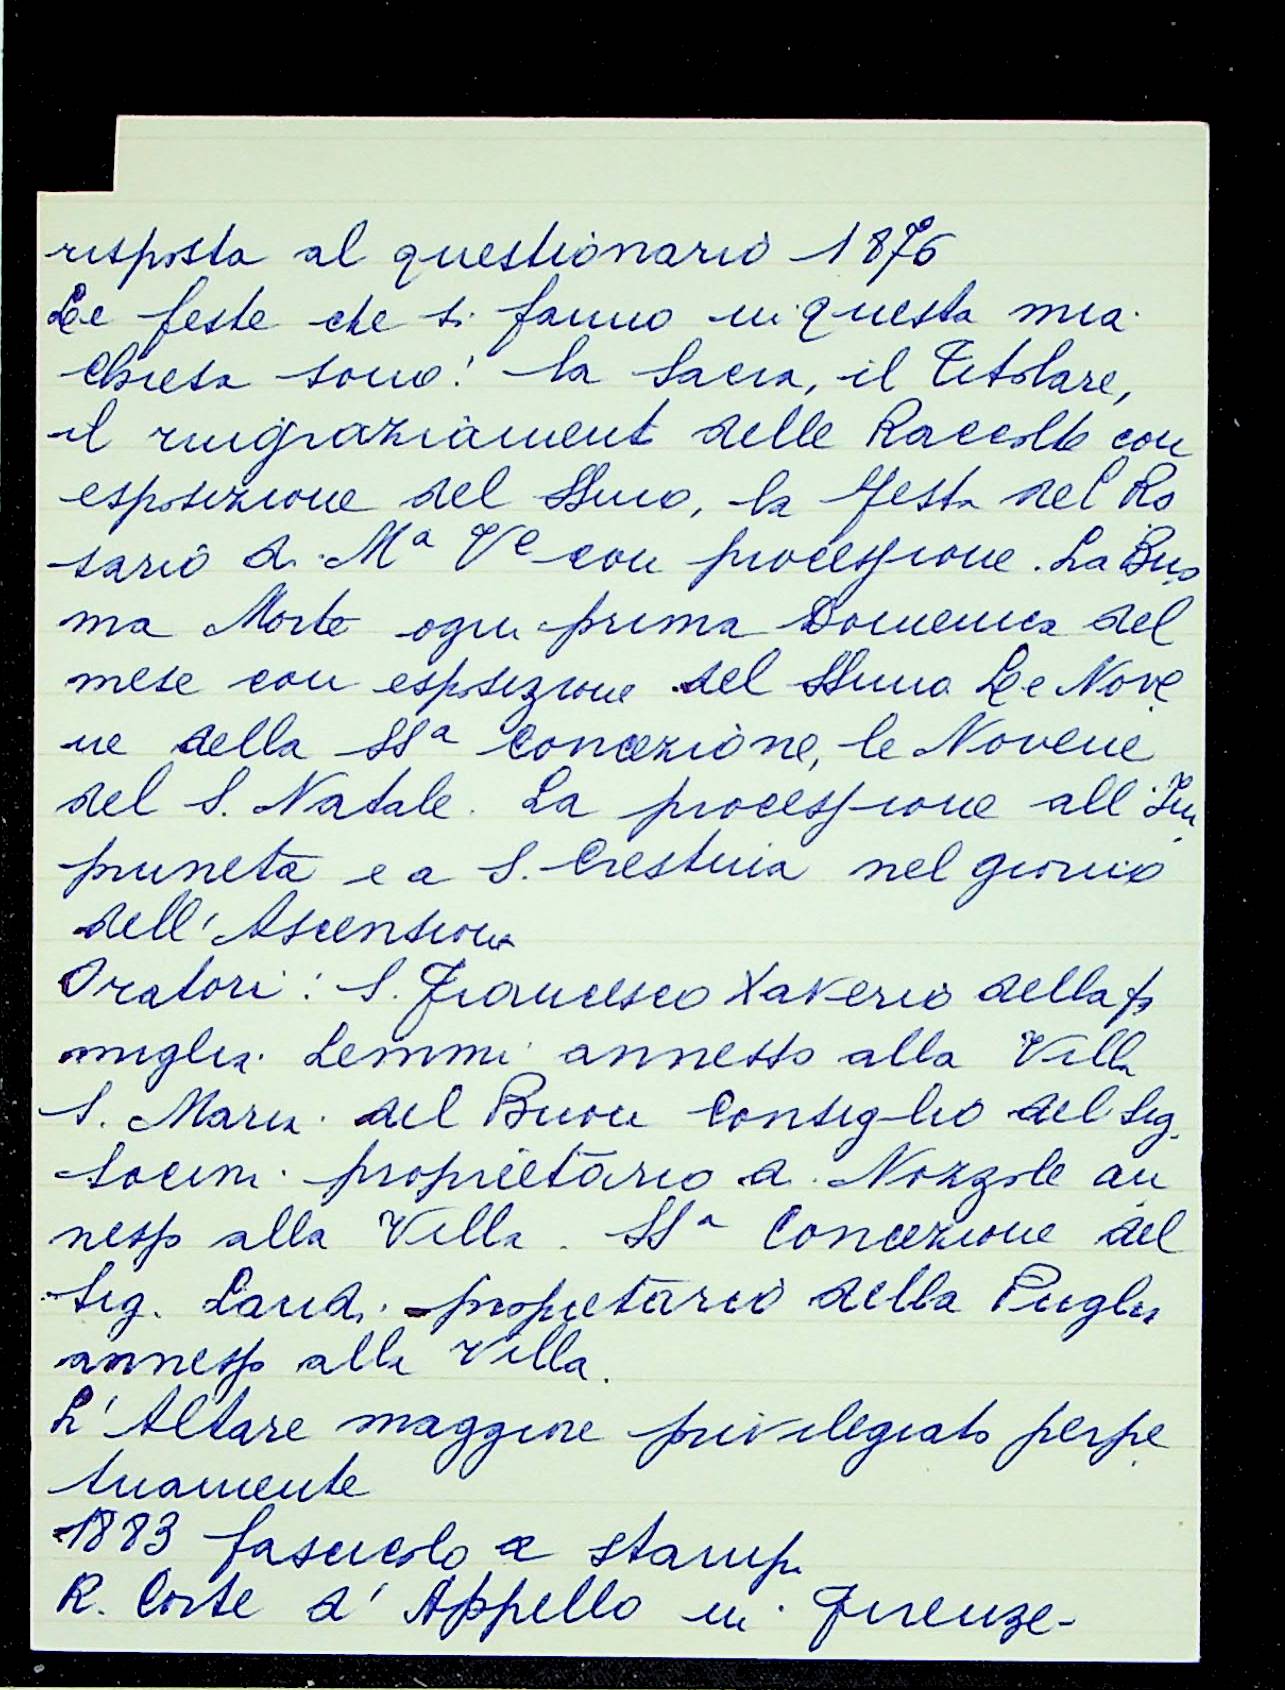 risposta al questionario 1876
Le feste che si fanno in questa mia
Chiesa sono: la Sacra, il Titolare,
il ringraziament delle Raccolte con
esposizione del SSmo, la festa del Ro
sario di Mª Vᵉ con processione. La Buo
na Morte ogni prima Domenica del
mese con esposizione del SSmo Le Nove
ne della SSª Concezione, le Novene
del S. Natale. La processione all'Im
pruneta e a S. Crestina nel giorno
dell'Ascensione
Oratori: S. Francesco Xaverio della fa
miglia Lemmi annesso alla Villa
S. Maria del Buon Consiglio del Sig.
Socini proprietario di Nozzole an
nesso alla Villa. SSª Concezione del
Sig. Landi proprietario della Puglia
annesso alla Villa.
L'Altare maggiore privilegiato perpe
tuamente
1883 fascicolo a stampa
R. Corte d'Appello in Firenze-